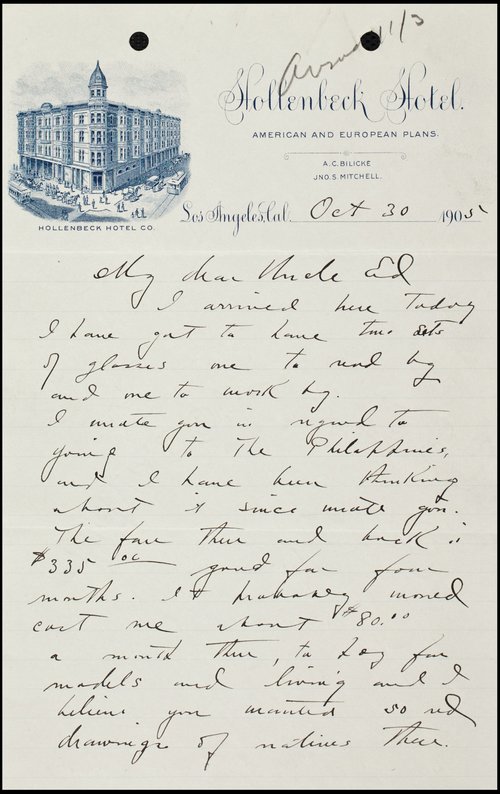 Hollenbeck Hotel.
AMERICAN AND EUROPEAN PLANS.
A.C. BILICKE
JNO. S. MITCHELL.
HOLLENBECK HOTEL CO.
Los Angeles, Cal. Oct 30 1905
My dear Uncle Ed
I arrived here today
I have got to have two sets
of glasses one to read by
and one to work by.
I wrote you in regard to
going to The Philappines,
and I have been thinking
about it since wrote you.
The fare there and back is
$335 00 good for four
months. It would
cost me about $80.00
a month there, to pay for
models and living and I
believe you wanted so
drawings of natives there.